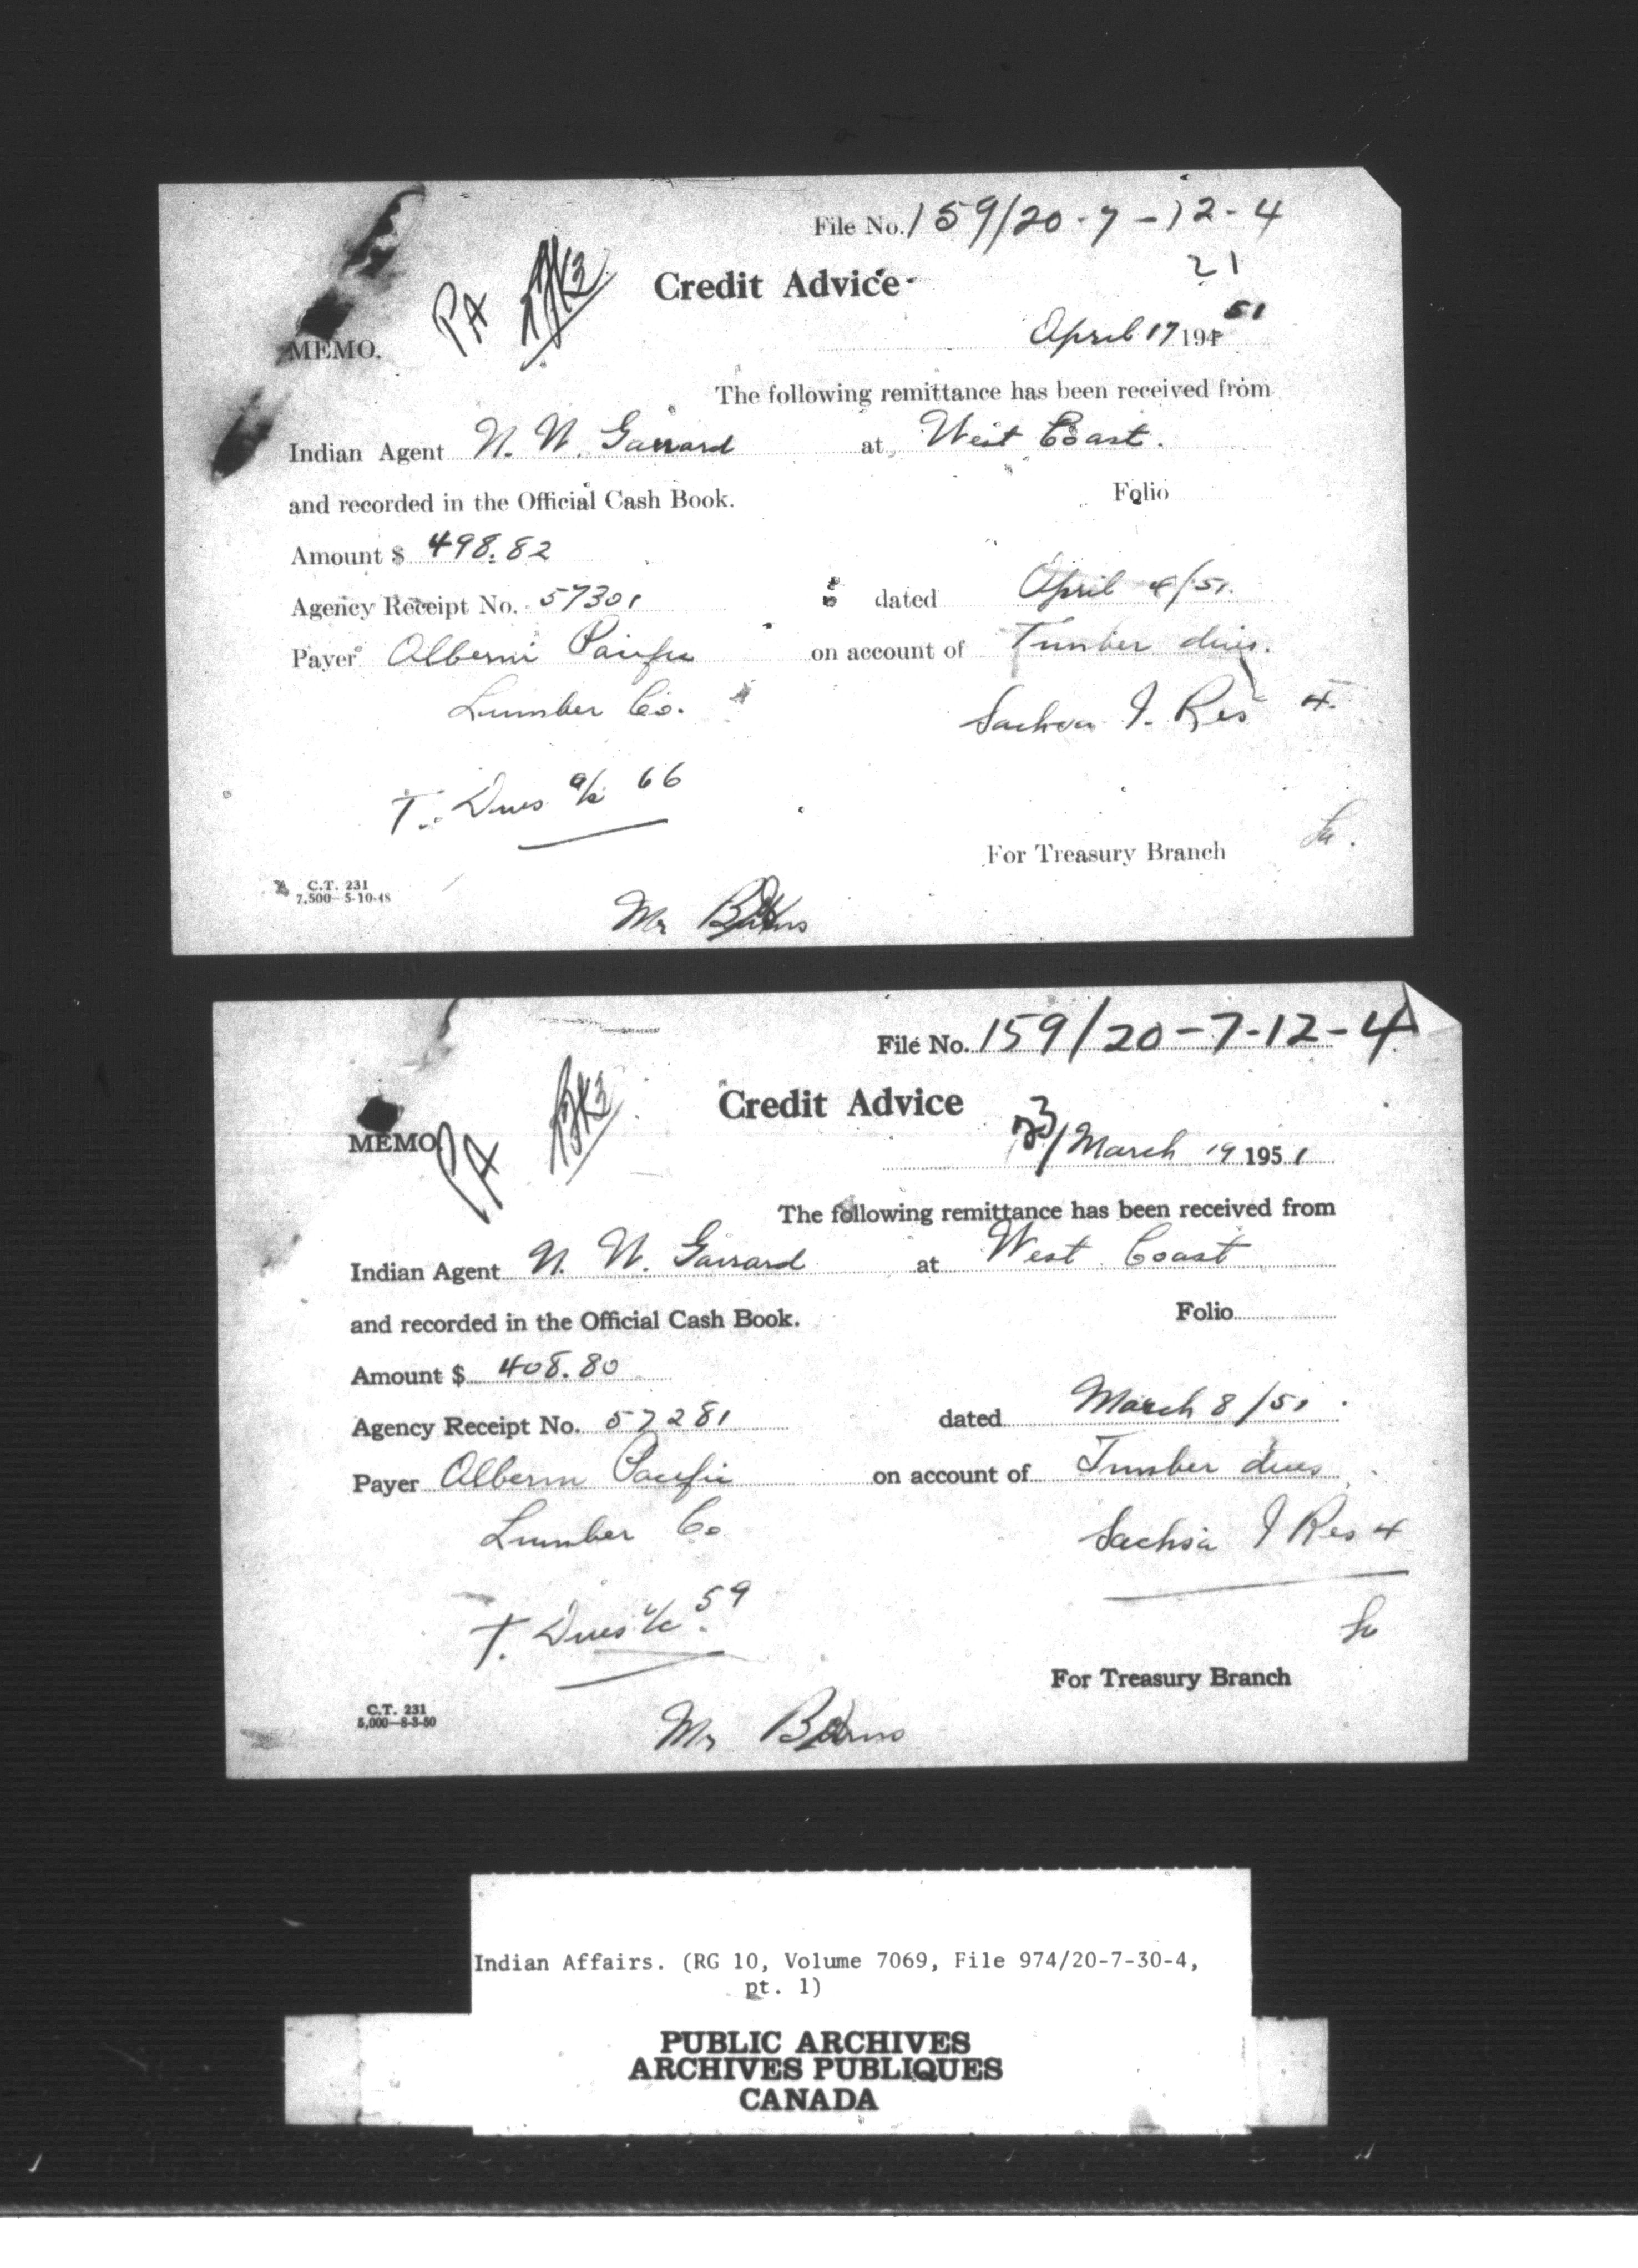 File No. 159/20-7-12-4
21
PA
Credit Advice
April 17 1951
MEMO.
The following remittance has been received from
Indian Agent N. W. Garrard at West Coast.
and recorded in the Official Cash Book. Folio
Amount $ 498.82
Agency Receipt No. 57301 dated April 4/51.
Payer Alberni Pacific on account of Timber dues.
Lumber Co. Sachsa I. Res 4.
T. Dues a/c 66
For Treasury Branch
C.T. 231
7,500-5-10-48
Mr
File No. 159/20-7-12-4
Credit Advice
23/March 19 1951
MEMO.
PA
The following remittance has been received from
Indian Agent N. W. Garrard at West Coast
and recorded in the Official Cash Book. Folio
Amount $ 408.80
Agency Receipt No. 57281 dated March 8/51.
Payer Alberni Pacific on account of Timber dues
Lumber Co Sachsa I Res 4
T. Dues a/c 59
For Treasury Branch
C.T. 231
5,000-8-3-50
Mr
Indian Affairs. (RG 10, Volume 7069, File 974/20-7-30-4,
pt. 1)
PUBLIC ARCHIVES
ARCHIVES PUBLIQUES
CANADA